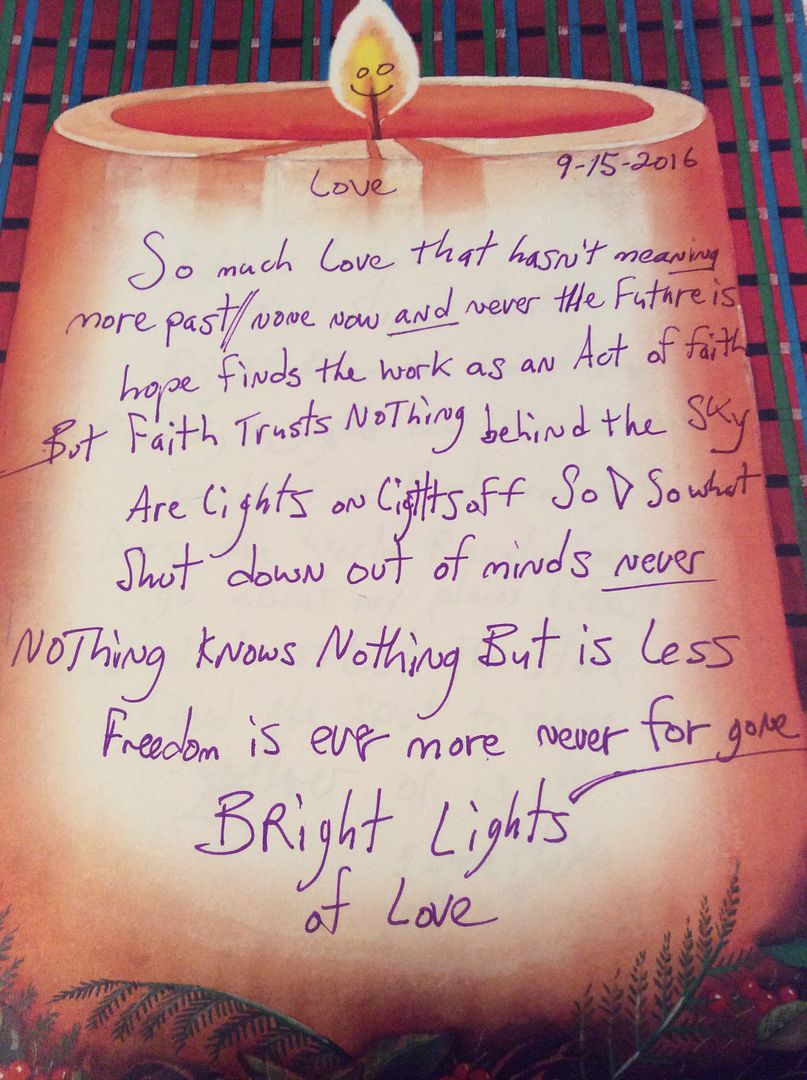 Love
9-15-2016
So much Love that hasn't meaning
more past// none now and never the Future is
hope finds the work as an Act of faith
But Faith Trusts NoThing behind the Sky
Are Lights on Lights off So So what
Shut down out of minds never
NoThing Knows Nothing But is Less
Freedom is ever more never for gone
BRight Lights
of Love